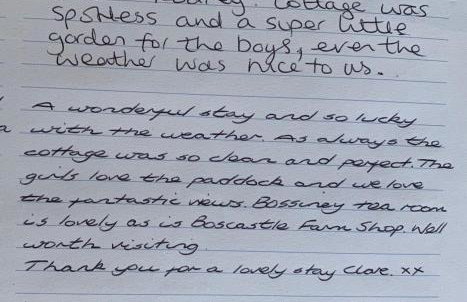 Cottage was
spotless and a super little
garden for the boys, even the
weather was nice to us..
A wonderful stay and so lucky
with the weather. As always the
cottage was so clean and perfect. The
girls love the paddock and we love
the fantastic views. Bossiney tea room
is lovely as is Boscastle Farm Shop. Well
worth visiting
Thank you for a lovely stay Clare. xx